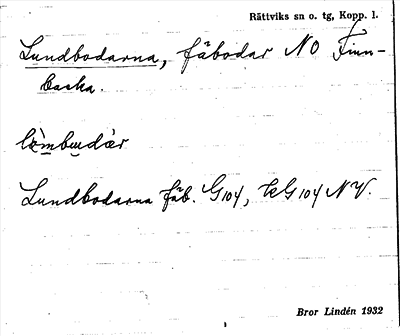 Rättviks sn o. tg, Kopp. l.
Lundbodarna, fäbodar NO Finn-
backa.
Lundbodarna fäb. G104, kG104 NV.
Bror Lindén 1932